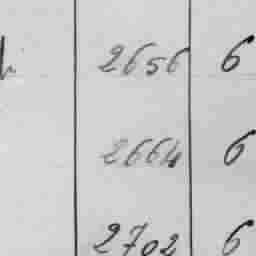 2656 6
2664 6
2702 6